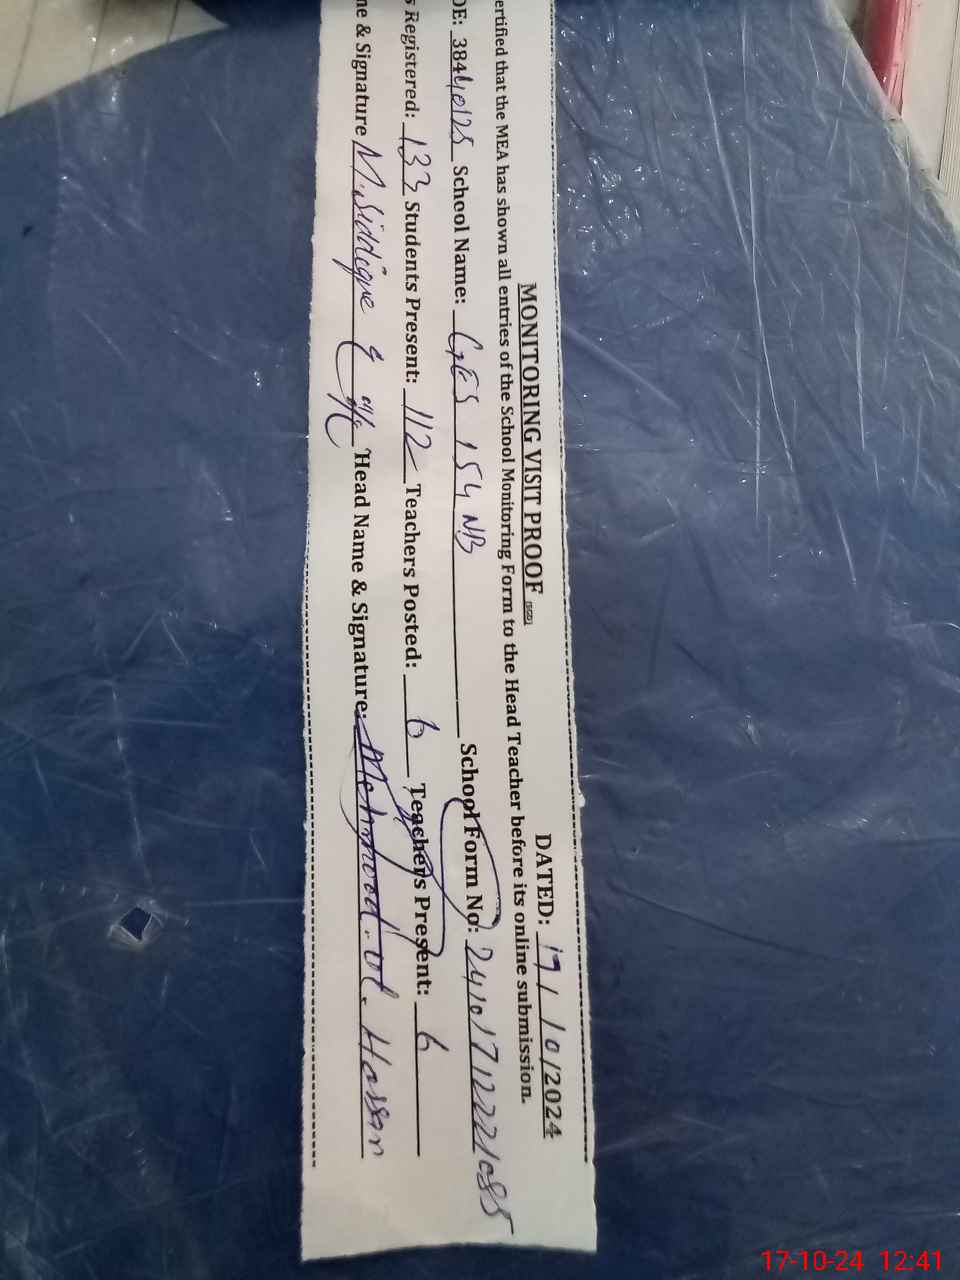 MONITORING VISIT PROOF DATED: 17/10/2024
ertified that the MEA has shown all entries of the School Monitoring Form to the Head Teacher before its online submission.
DE: 38440125 School Name: GES 154 NB School Form No: 241017122221085
s Registered: 133 Students Present: 112 Teachers Posted: 6 Teachers Present: 6
ne & Signature M.Siddique Head Name & Signature: Mehmood.ul.Hassan
17-10-24 12:41